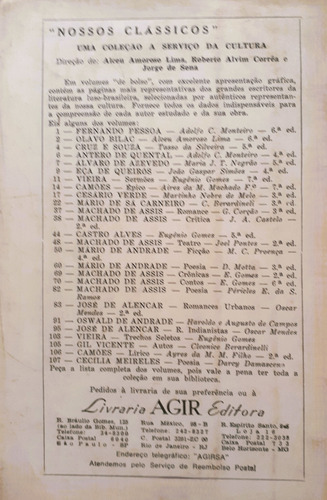 "NOSSOS CLÁSSICOS"
UMA COLEÇÃO A SERVIÇO DA CULTURA
Direção de: Alceu Amoroso Lima, Roberto Alvim Corrêa e
Jorge de Sena
Em volumes "de bolso", com excelente apresentação gráfica,
contém as páginas mais representativas dos grandes escritores da
literatura luso-brasileira, selecionadas por autênticos representan-
tes da nossa cultura. Fornece todos os dados indispensáveis para
a compreensão de cada autor estudado e da sua obra.
Eis alguns dos volumes:
1 — FERNANDO PESSOA — Adolfo C. Monteiro — 6.ª ed.
2 — OLAVO BILAC — Alceu Amoroso Lima — 6.ª ed.
4 — CRUZ E SOUZA — Tasso da Silveira — 5.ª ed.
6 — ANTERO DE QUENTAL — Adolfo C. Monteiro — 4.ª ed.
7 — ALVARO DE AZEVEDO — Maria J. T. Negrão — 3.ª ed.
9 — EÇA DE QUEIRÓS — João Gaspar Simões — 4.ª ed.
11 — VIEIRA — Sermões — Eugênio Gomes — 7.ª ed.
14 — CAMÕES — Épico — Aires da M. Machado F.º — 7.ª ed.
17 — CESÁRIO VERDE — Martinho Nobre de Melo — 3.ª ed.
22 — MÁRIO DE SÁ CARNEIRO — C. Berardinelli — 3.ª ed.
37 — MACHADO DE ASSIS — Romance — G. Corção — 3.ª ed.
38 — MACHADO DE ASSIS — Crítica — J. A. Castelo —
2.ª ed.
44 — CASTRO ALVES — Eugênio Gomes — 5.ª ed.
48 — MACHADO DE ASSIS — Teatro — Joel Pontes — 2.ª ed.
50 — MÁRIO DE ANDRADE — Ficção — M. C. Proença —
4.ª ed.
60 — MÁRIO DE ANDRADE — Poesia — D. Motta — 3.ª ed.
69 — MACHADO DE ASSIS — Crônicas — E. Gomes — 2.ª ed.
70 — MACHADO DE ASSIS — Contos — E. Gomes — 6.ª ed.
82 — MACHADO DE ASSIS — Poesia — Péricles E. da S.
Ramos
83 — JOSÉ DE ALENCAR — Romances Urbanos — Oscar
Mendes — 2.ª ed.
91 — OSWALD DE ANDRADE — Haroldo e Augusto de Campos
95 — JOSÉ DE ALENCAR — R. Indianistas — Oscar Mendes
103 — VIEIRA — Trechos Seletos — Eugênio Gomes
105 — GIL VICENTE — Autos — Cleonice Berardinelli
106 — CAMÕES — Lírico — Ayres da M. M. Filho — 2.ª ed.
107 — CECÍLIA MEIRELES — Poesia — Darcy Damasceno
Peça a lista completa dos volumes, pois vale a pena ter toda a
coleção em sua biblioteca.
Pedidos à livraria de sua preferência ou à
Livraria AGIR Editora
R. Bráulio Gomes, 125
(ao lado da Bib. Mun.)
Telefone: 34-8300
Caixa Postal 6040
São Paulo — SP
Rua México, 98-B
Telefone: 242-8327
C. Postal 3291-ZC 00
Rio de Janeiro — RJ
R. Espírito Santo,
Loja 16
Telefone: 222-3038
Caixa Postal 733
Belo Horizonte — MG
Endereço telegráfico: "AGIRSA"
Atendemos pelo Serviço de Reembolso Postal